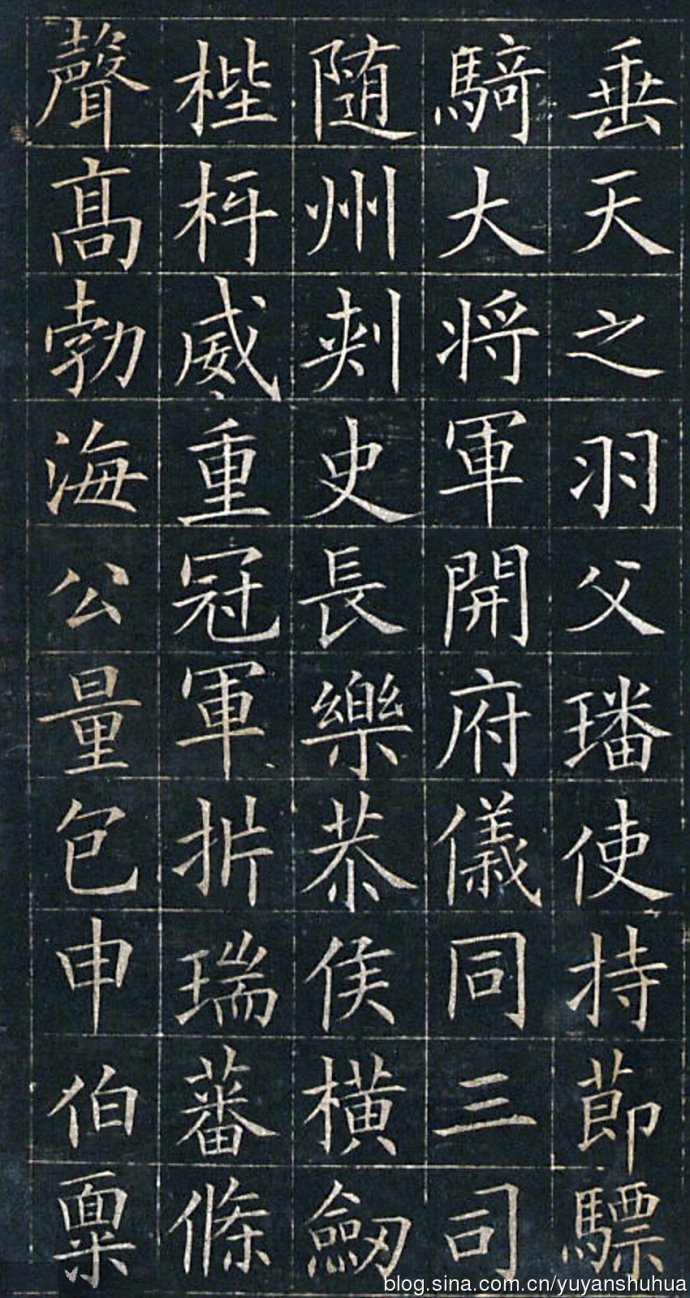 垂天之羽父璠使持莭驃
騎大将軍開府儀同三司
随州刾史長樂恭侯橫劒
梐枑威重冠軍析瑞蕃條
聲髙勃海公量包申伯稟
blog.sina.com.cn/yuyanshuhua